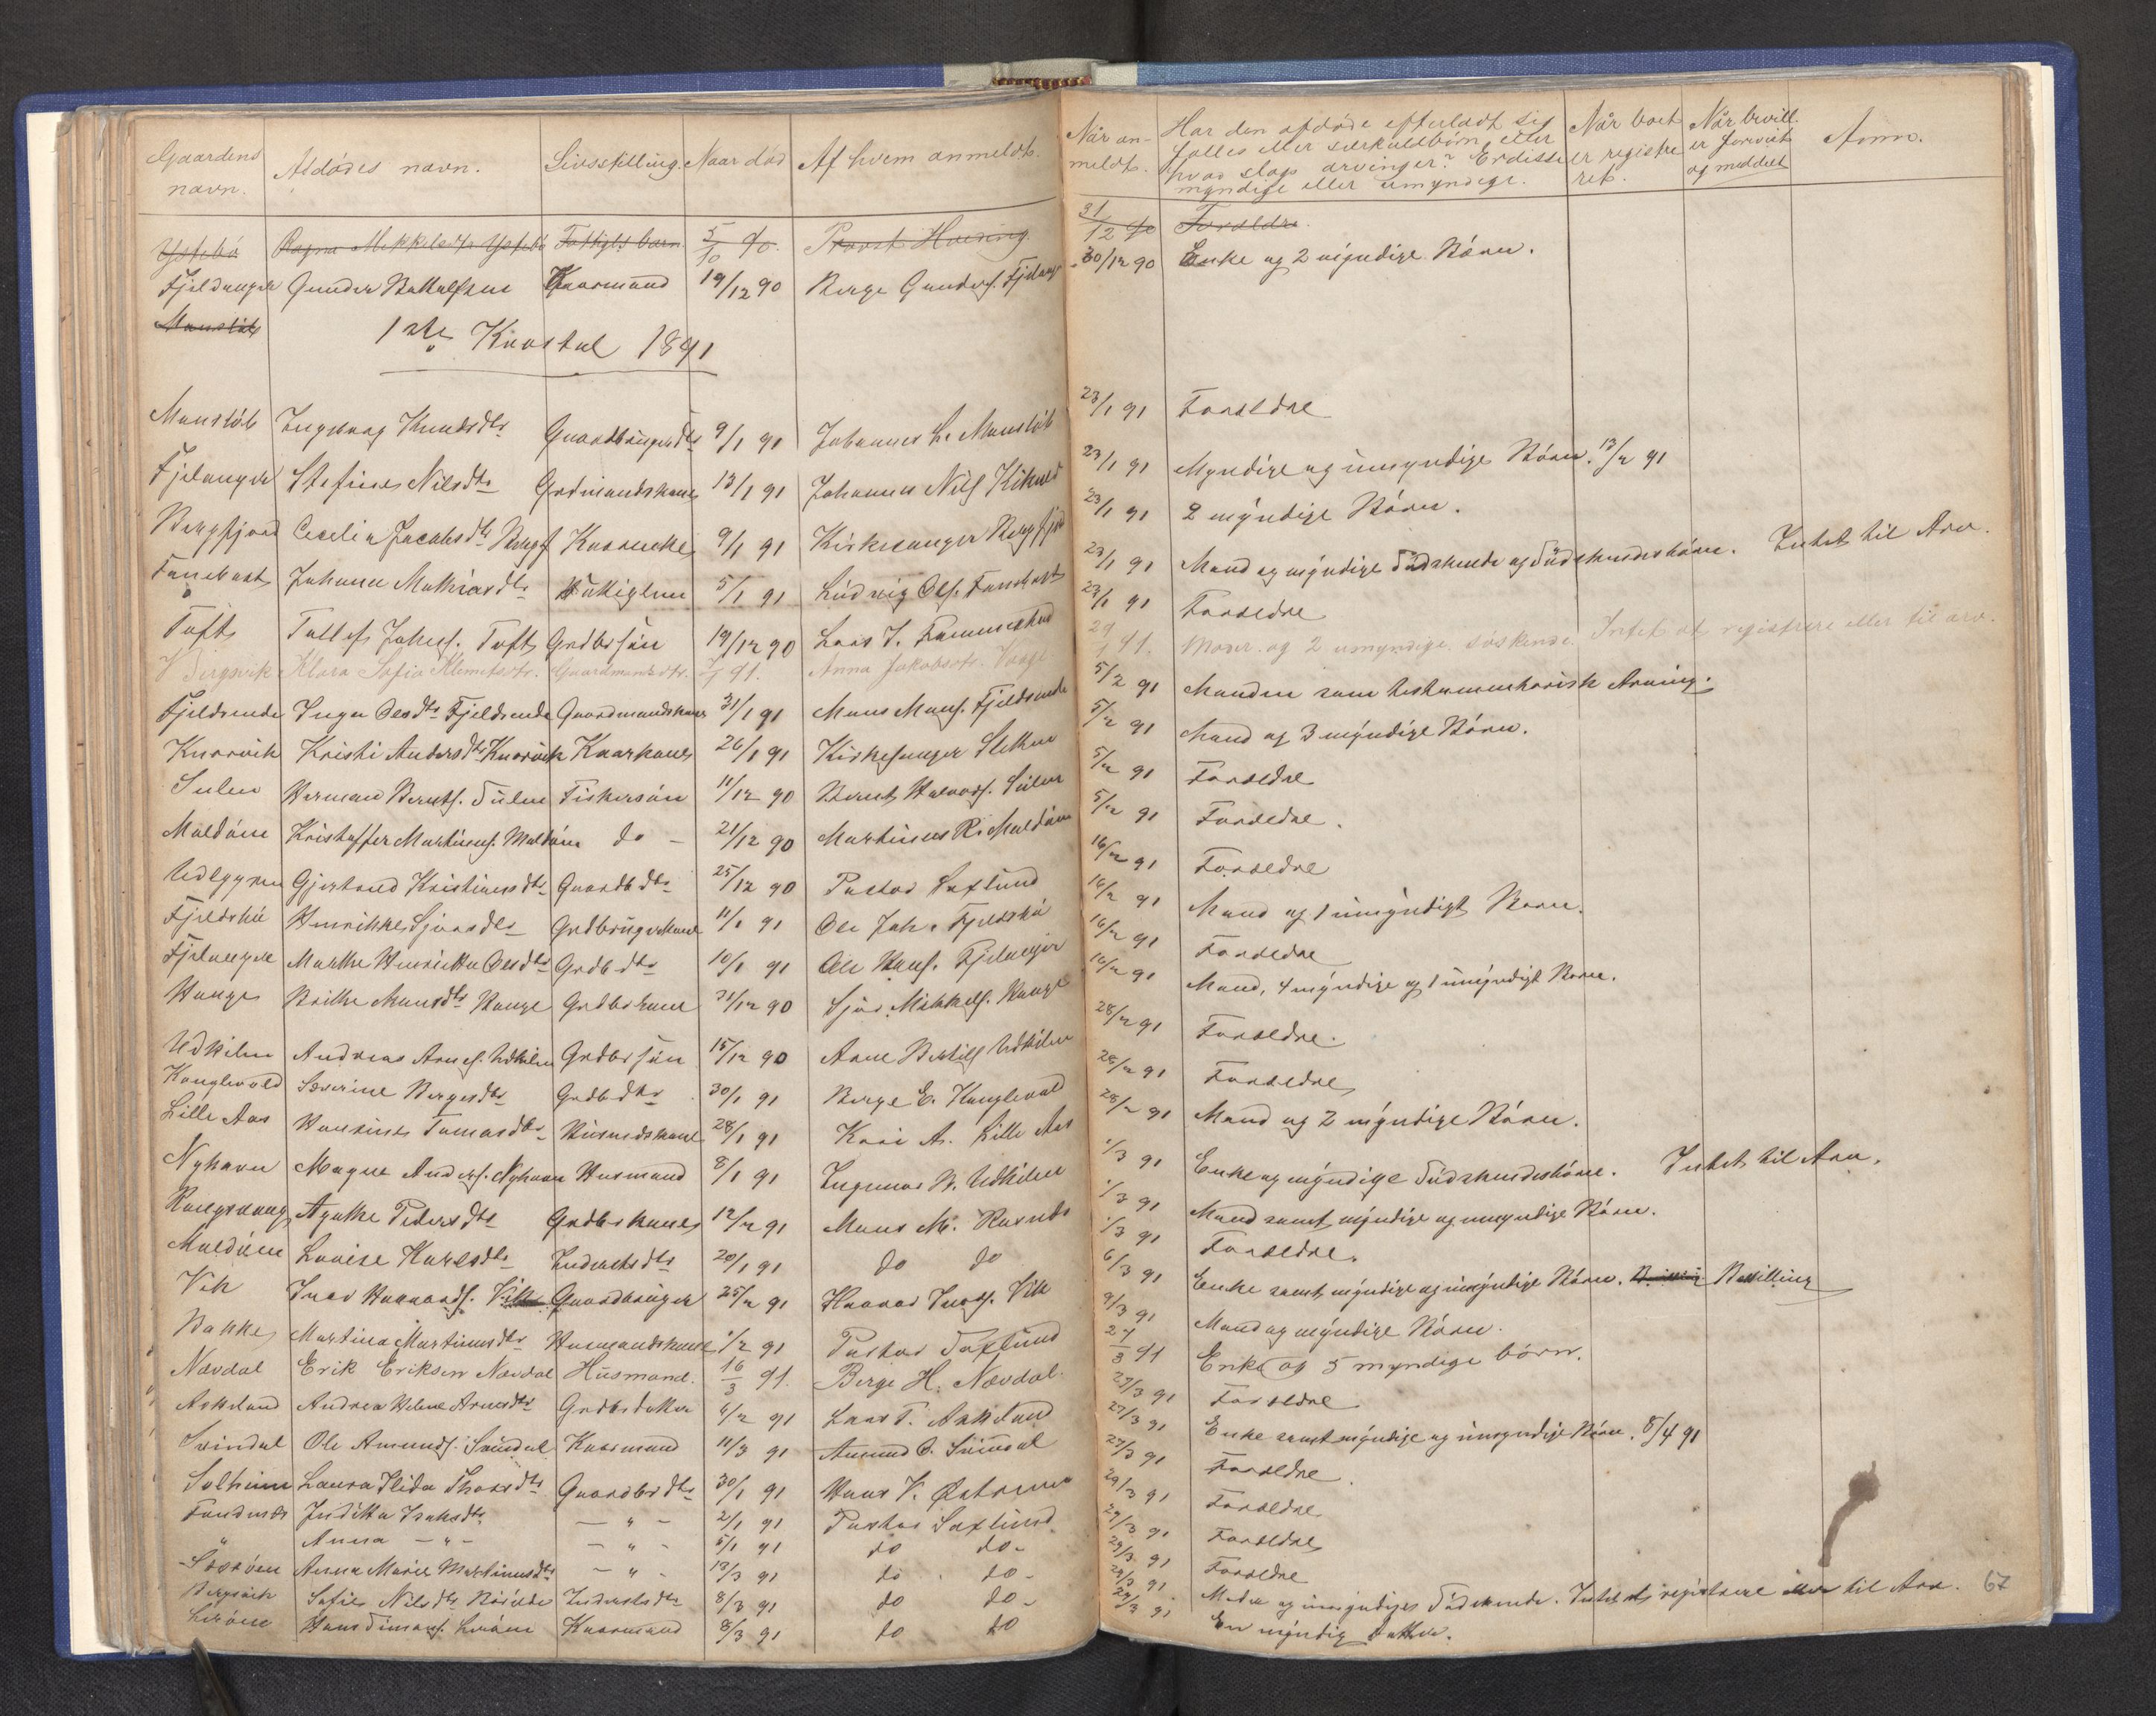 Gaardens navn. Afdødes navn. Livsstilling. Naar død Af hvem anmeldt. Når anmeldt. Har den afdøde efterladt sig fælles eller særkuldbörn eller hvad slags arvinger? Er disse myndige eller umyndige. Når boet er registreret. Når bevill. er forevist og meddelt Anm.
Fattigbarn 5/10 90. Provst 31/12 90 Forældre.
Fjeldanger Gunder Kaarmand 19/12 90 Berge Gunders. Fjelanger 30/12 90 Enke og 2 myndige Börn.
1ste Kvartal 1891
Manslåt Ingeborg Knudsdtr Gaardbrugerdtr 9/1 91 Johannes L. Manslåt 23/1 91 Forældre
Fjelanger Stefine Nilsdtr Grdmandskone 13/1 91 Johannes Nils 23/1 91 Myndige og umyndige Börn. 13/2 91
Bergfjord Cecelia Jacobsdtr Bergf Kaarenke 9/1 91 Kirkesanger Bergfjord 23/1 91 2 myndige Börn.
Fanebust Johanne Mathiasdtr Fattiglem 5/1 91 Ludvig Ols. Fanebust 23/1 91 Mand og myndige Sødskende og Sødskendebörn. Intet til Arv.
Toft Tollef Johns. Toft Grdbr sön 19/12 90 Lars J. 23/1 91 Forældre
Klara Sofia Klemetsdtr. Gaardmandsdtr. 91. Anna Jakobsdtr. 29/1 91. Moder og 2 umyndige söskende. Intet at registrere eller til arv.
Fjeldsende Inga Olsdtr Fjeldsende Gaardmandskone 31/1 91 Mons Mons. Fjeldsende 5/2 91 Manden som testamentarisk Arving.
Knarvik Kristi Andersdtr Knarvik Kaarkone 26/1 91 Kirkesanger 5/2 91 Mand og 3 myndige Börn.
Sulen Herman Berents. Sulen Fiskersön 11/12 90 Berent Halvors. Sulen 5/2 91 Forældre
Maldöen Kristoffer Martinus. Maldöen do - 21/12 90 Martinus R. Maldöen 5/2 91 Forældre.
Gjertrud Kristiansdtr Gaardb dtr 25/12 90 Pastor Saxlund 16/2 91 Forældre
Fjeldskå Henrikke Sjursdtr Grdbrugerkone 11/1 91 Ole Joh. Fjeldskå 16/2 91 Mand og 1 umyndigt Barn.
Fjelanger Marthe Henrikka Olsdtr Grdb dtr 10/1 91 Ole Hans. Fjelanger 16/2 91 Forældre
Hauge Brithe Monsdtr Hauge Grdbr kone 31/12 90 Sjur Mikkels. Hauge 16/2 91 Mand, 4 myndige og 1 umyndigt Barn.
Udkilen Andreas Arnes. Udkilen Grdbr sön 15/12 90 Arne Bertils Udkilen 28/2 91 Forældre.
Kanglevold Severine Bergesdtr Grdb dtr 30/1 91 Berge E. Kanglevold 28/2 91 Forældre
Lille Aas Hansine Tomasdtr Husmdskone 28/1 91 Kari A. Lille Aas 28/2 91 Mand og 2 myndige Börn.
Nyhavn Magne Anders. Nyhavn Husmand 8/1 91 Ingemar B. Udkilen 1/3 91 Enke og myndige Sødskendebörn. Intet til Arv.
Agathe Pedersdtr Grdbrkone 12/2 91 Mons M. 1/3 91 Mand samt myndige og umyndige Börn.
Maldöen Lovise Karlsdtr Inderstsdtr 20/1 91 do do 1/3 91 Forældre.
Vik Iver Haavards. Vik Gaardbruger 25/2 91 Haavard Ivers. Vik 6/3 91 Enke samt myndige og umyndige Börn. Bevilling
Bakke Martina Martinusdtr Husmandskone 1/2 91 Pastor Saxlund 9/3 91 Mand og myndige Börn.
Nævdal Erik Eriksen Nævdal Husmand. 16/3 91. Berge H. Nævdal. 24/3 91 Enke og 5 myndige börn.
Askeland Andrea Helene Arnesdtr Grdbrdatter 6/2 91 Lars T. Askeland 27/3 91 Forældre
Svindal Ole Amunds. Svindal Kaarmand 11/3 91 Amund O. Svindal 27/3 91 Enke samt myndige og umyndige Börn. 8/4 91
Solheim Laura Ilida Thorsdtr Gaardbr dtr 30/1 91 Hans V. 27/3 91 Forældre.
Judikka Isaksdtr — " — 2/1 91 Pastor Saxlund 29/3 91 Forældre
" Anna — " — — " — 5/1 91 do do- 29/3 91 Forældre
Anna Marie Martinusdtr — " — 13/3 91 do do- 29/3 91 Forældre
Bergsvik Sofie Nilsdtr Inderstsdtr 8/3 91 do do- 29/3 91 Moder og umyndige Sødskende. Intet at registrere eller til Arv. 67
Hans Kaarmand 8/3 91 do do 29/3 91 En myndig Datter.